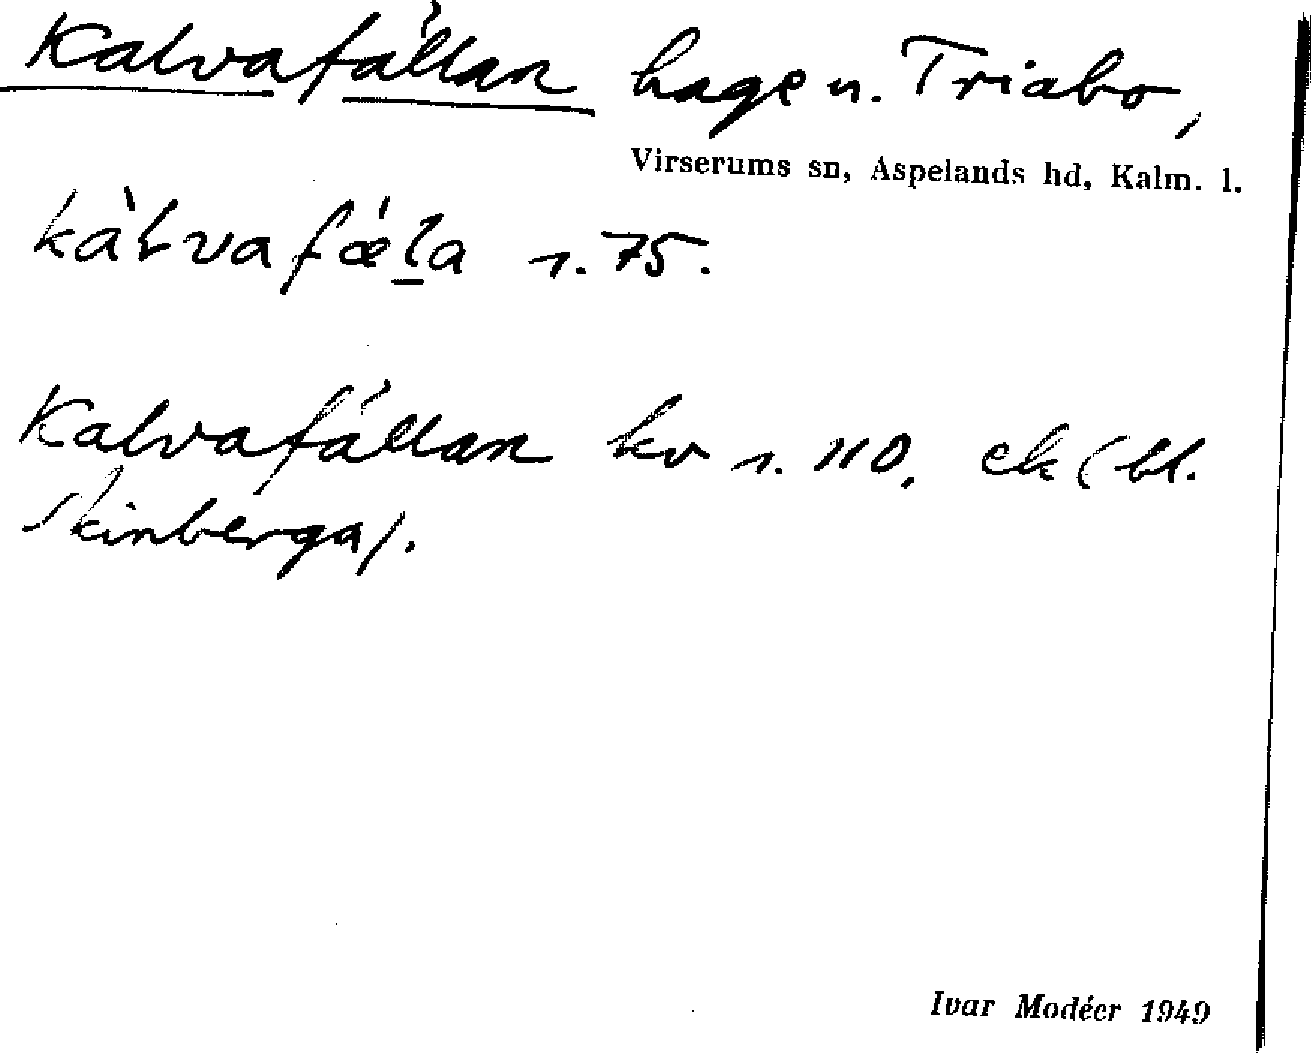 Kalvafållan hage n. Triabo,
Virserums sn, Aspelands hd, Kalm. l.
kàɫvafǽl̲a s. 75.
Kalvafållan kv s. 110, ek (bl.
Skinberga).
Ivar Modéer 1949